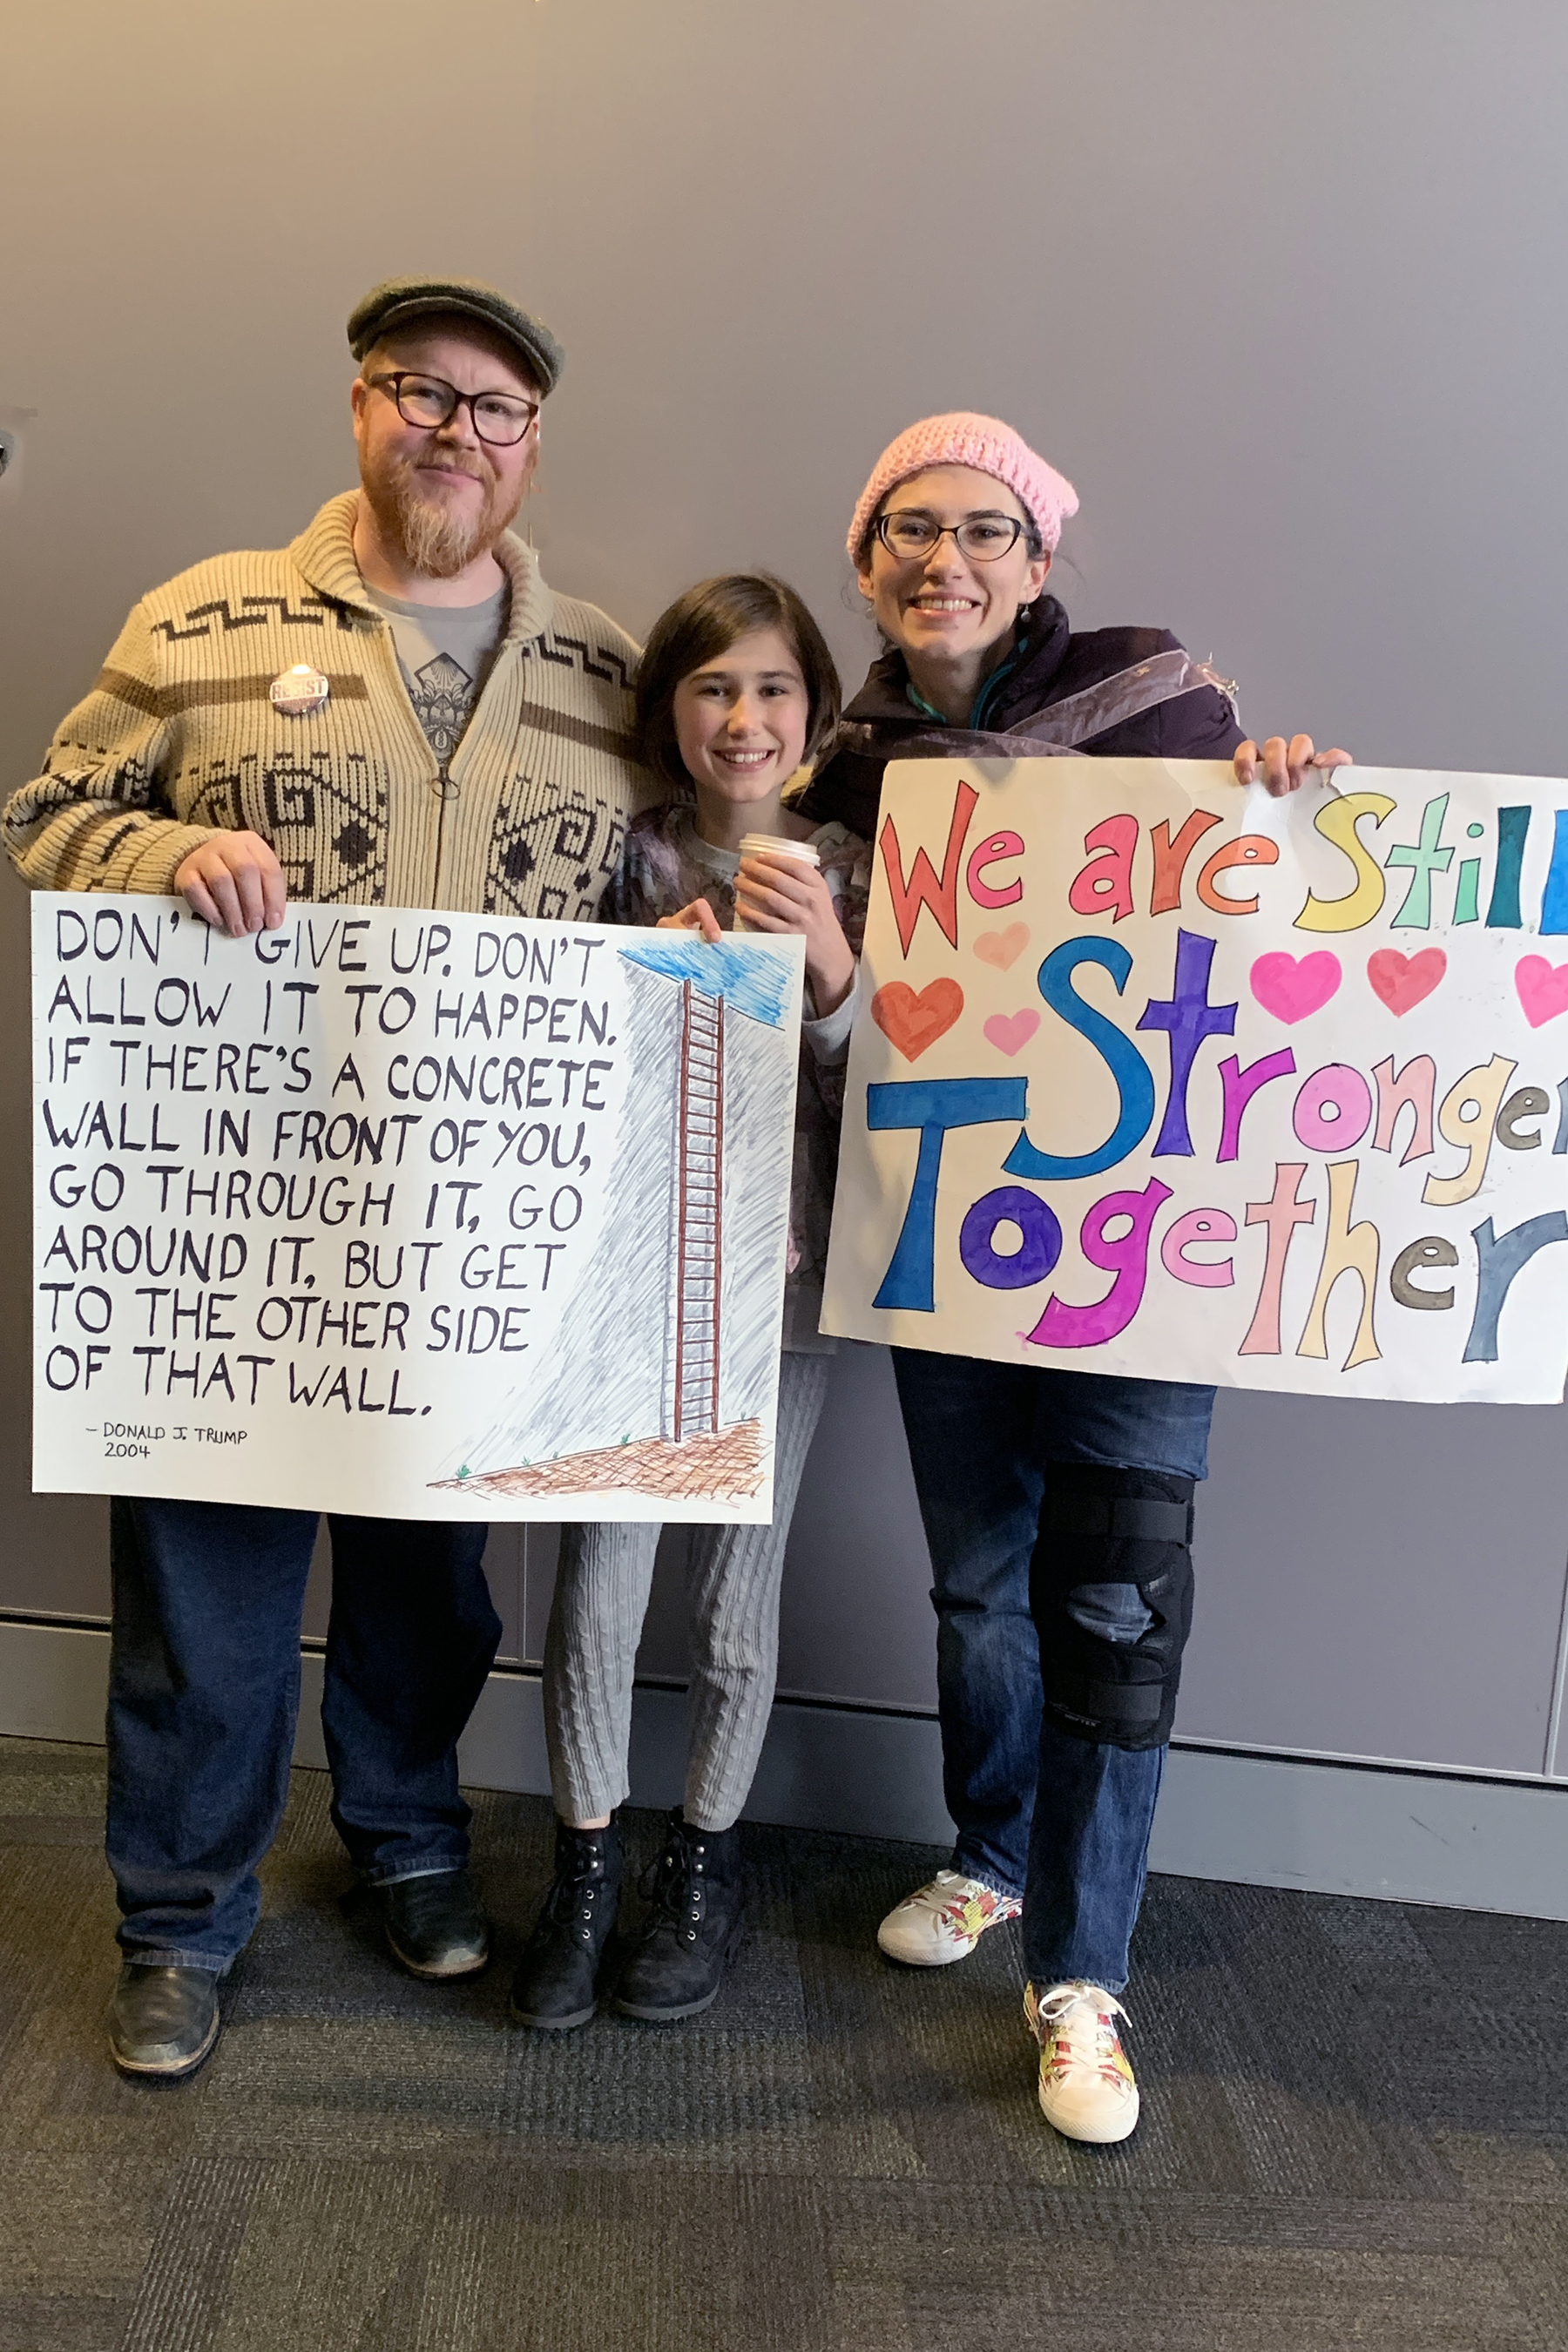 RESIST
DON'T GIVE UP. DON'T
ALLOW IT TO HAPPEN.
IF THERE'S A CONCRETE
WALL IN FRONT OF YOU,
GO THROUGH IT, GO
AROUND IT, BUT GET
TO THE OTHER SIDE
OF THAT WALL.
– DONALD J. TRUMP
2004
We are Still
Stronger
Together